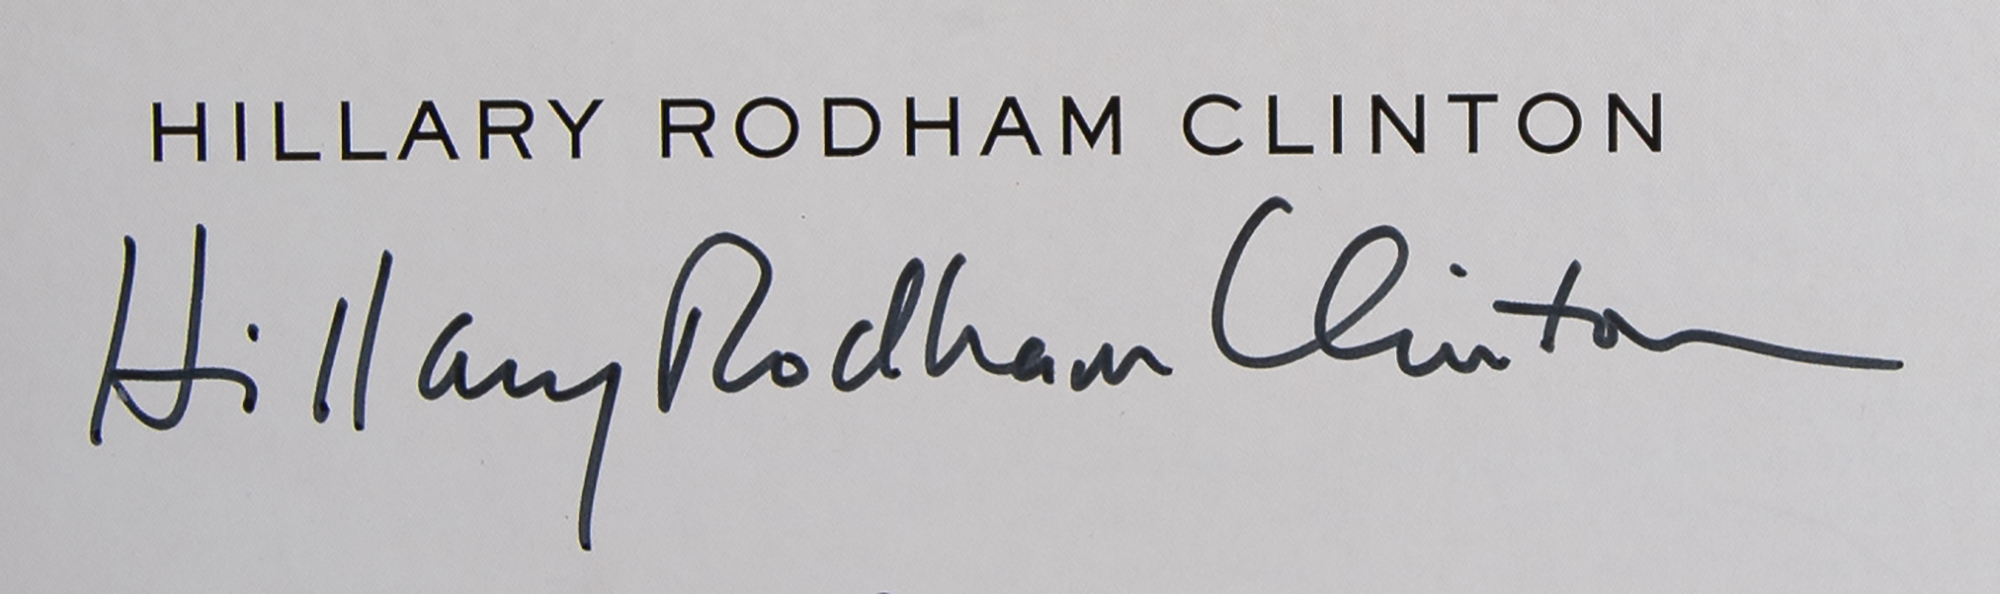 HILLARY RODHAM CLINTON
Hillary Rodham Clinton